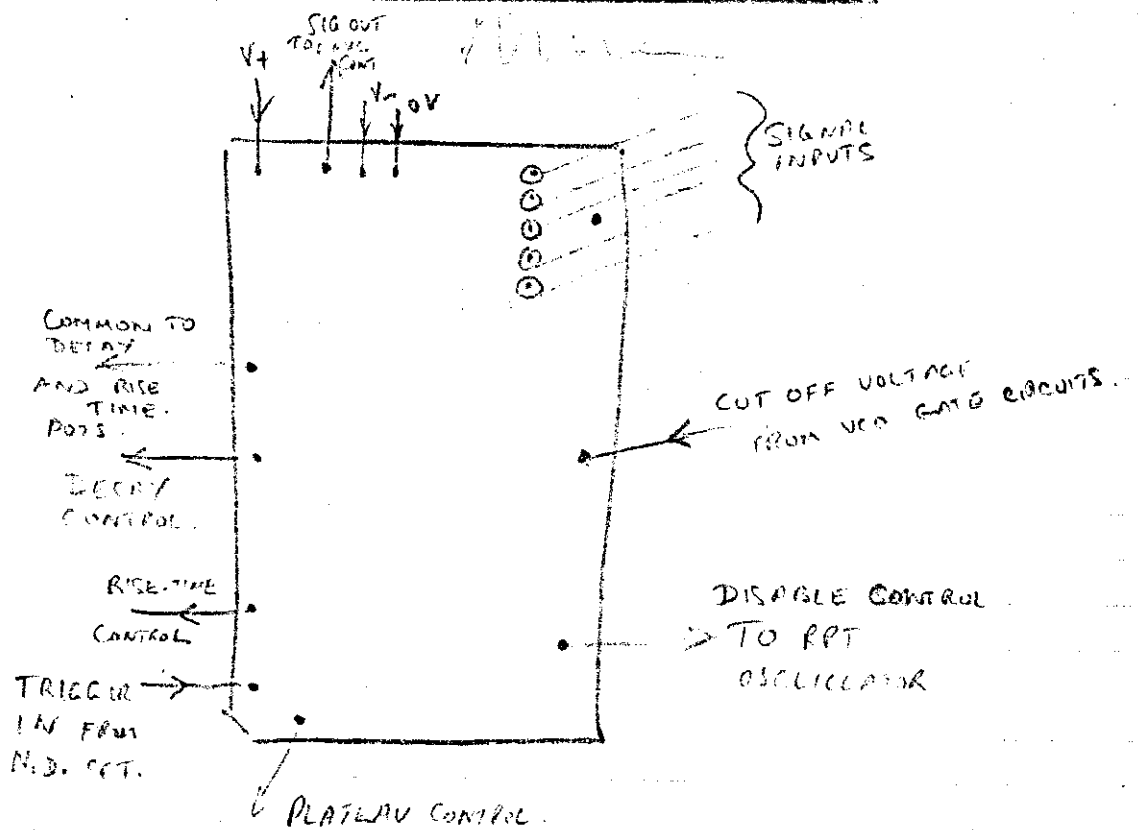 V+
SIG OUT
TO
CONT
V-
0V
SIGNAL
INPUTS
COMMON TO
DECAY
AND RISE
TIME.
POTS.
DECAY
CONTROL.
RISE-TIME
CONTROL
TRIGGER
IN FROM
N.D. CCT.
PLATEAU CONTROL.
CUT OFF VOLTAGE
FROM VCA GATE CIRCUITS.
DISABLE CONTROL
TO RPT
OSCLICLATOR